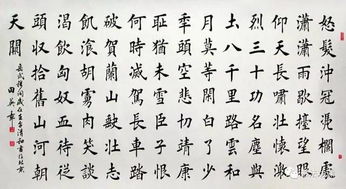 怒髮沖冠憑欄處
瀟瀟雨歇擡望眼
仰天長嘯壯懷激
烈三十功名塵與
土八千里路雲和
月莫等閑白了少
年頭空悲切靖康
恥猶未雪臣子恨
何時滅駕長車踏
破賀蘭山缺壯志
飢飡胡虜肉笑談
渴飲匈奴血待從
頭收拾舊山河朝
天闕
田英章